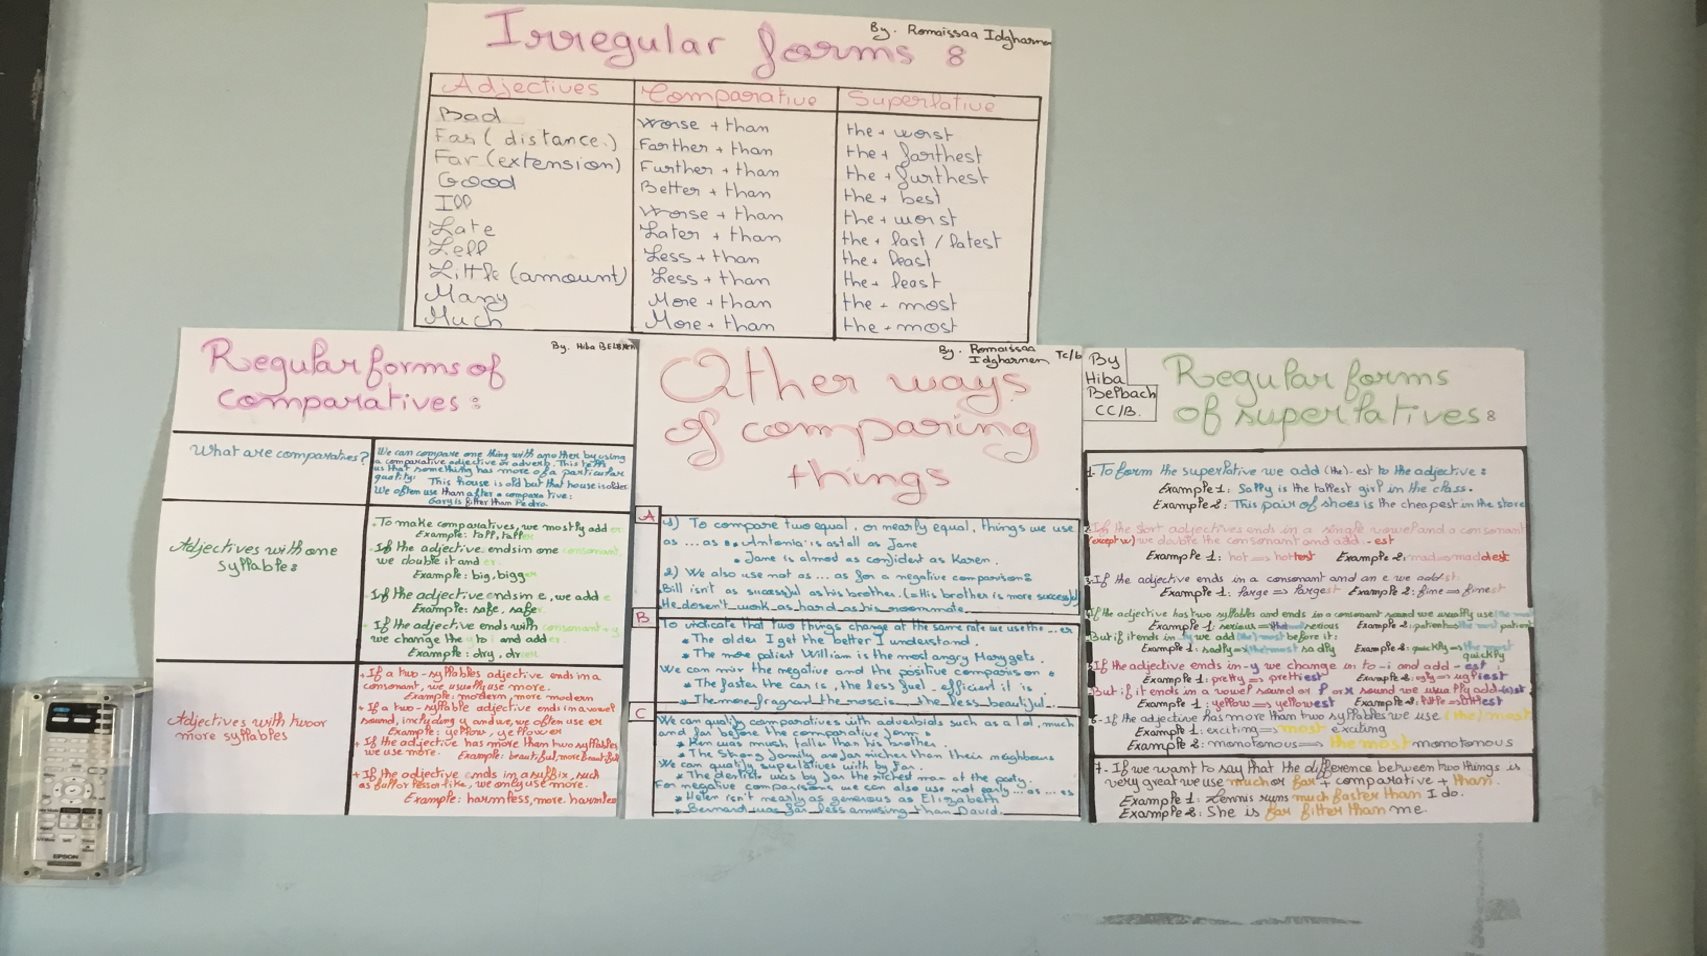 Irregular forms :
By. Romaissaa Idgharmen
Adjectives Comparative Superlative
Bad Worse + than the + worst
Far (distance.) Farther + than the + farthest
Far (extension) Further + than the + furthest
Good Better + than the + best
Ill Worse + than the + worst
Late Later + than the + last / latest
Less + than the + least
Little (amount) Less + than the + least
Many More + than the + most
Much More + than the + most
Regular forms of
comparatives :
By. Hiba
What are comparatives?
We can compare one thing with another by using
a comparative adjective or adverb. This tells
us that something has more of a particular
quality: This house is old but that house is older
We often use than after a comparative:
Gary is fitter than Pedro.
Adjectives with one
syllable:
. To make comparatives, we mostly add er
Example: tall, taller
. If the adjective ends in one consonant,
we double it and er.
Example: big, bigger
. If the adjective ends in e, we add e
Example: safe, safer
. If the adjective ends with consonant + y
we change the y to i and add er.
Example: dry, drier
Adjectives with two or
more syllables
+ If a two-syllables adjective ends in a
consonant, we usually use more.
Example: modern, more modern
+ If a two-syllable adjective ends in a vowel
sound, including y and we, we often use er
Example: yellow, yellower
+ If the adjective has more than two syllables
we use more. Example: beautiful, more beautiful
+ If the adjective ends in a suffix, such
as ful or less or like, we only use more.
Example: harmless, more harmless
By. Romaissaa
Idgharmen Tc/b
Other ways
of comparing
things
A
1) To compare two equal, or nearly equal, things we use
as ... as : . Antonia is as tall as Jane
. Jane is almost as confident as Karen.
2) We also use not as ... as for a negative comparison:
Bill isn't as sucessful as his brother. (= His brother is more successful)
He doesn't work as hard as his roommate.
B
To indicate that two things change at the same rate we use the ... er
* The older I get the better I understand.
* The more patient William is the most angry Mary gets.
We can mix the negative and the positive comparison :
* The faster the car is, the less fuel-efficient it is
* The more fragrant the rose is the less beautiful.
C
We can qualify comparatives with adverbials such as a lot, much
and far before the comparative form :
* Ken was much taller than his brother.
* The Strong family are far richer than their neighbours
We can qualify superlatives with by far.
* The dentist was by far the richest man at the party.
For negative comparisons we can also use not early ... as ... as
* Helen isn't nearly as generous as Elizabeth
* Bernard was far less amusing than David.
By
Hiba
Belbach
CC/B.
Regular forms
of superlatives :
1. To form the superlative we add (the) - est to the adjective :
Example 1: Sally is the tallest girl in the class.
Example 2: This pair of shoes is the cheapest in the store
If the short adjectives ends in a single vowel and a consonant
(except w) we double the consonant and add - est
Example 1: hot => hottest Example 2: mad => maddest
If the adjective ends in a consonant and an e we add st.
Example 1: large => largest Example 2: fine => finest
If the adjective has two syllables and ends in a consonant sound we usually use the most
Example 1: serious => the most serious Example 2: patient => the most patient
But if it ends in -ly we add (the) most before it:
Example 1: sadly => the most sadly Example 2: quickly => the most
quickly
5. If the adjective ends in -y we change in to -i and add - est :
Example 1: pretty => prettiest Example 2: ugly => ugliest
But if it ends in a vowel sound or l or x sound we usually add-(e)st
Example 1: yellow => yellowest Example 2: little => littlest
6- If the adjective has more than two syllables we use (the) most
Example 1: exciting => most exciting
Example 2: monotonous => the most monotonous
7. If we want to say that the difference between two things is
very great we use much or far + comparative + than.
Example 1: Lennis runs much faster than I do.
Example 2: She is far fitter than me.
EPSON